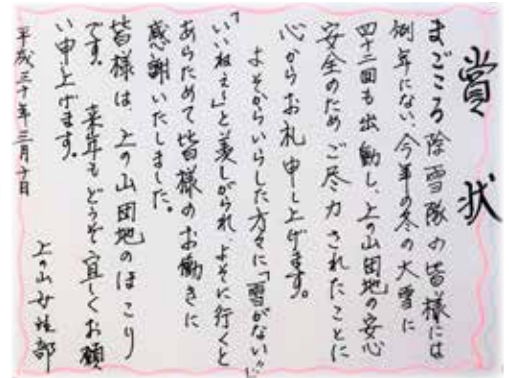 賞状
まごころ除雪隊の皆様には
例年にない、今年の冬の大雪に
四十三回も出動し、上の山団地の安心
安全のためご尽力されたことに
心からお礼申し上げます。
よそからいらした方々に「雪がない!!」
「いいねぇ~」と羨しがられ、よそに行くと
あらためて皆様のお働きに
感謝いたしました。
皆様は、上の山団地のほこり
です。来年もどうぞ宜しくお願
い申し上げます。
平成三十年三月十日
上の山女性部